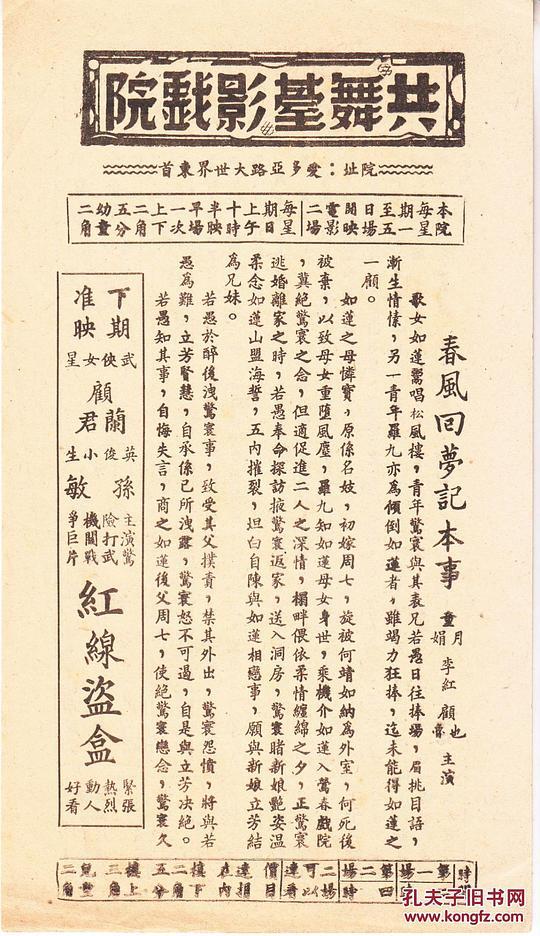 共舞臺影戲院
院址：愛多亞路大世界東首
本院每星期一至五日場開映電影二場
每星期日上午十時半映早場一次上下二角五分幼童二角
春風回夢記本事
童月娟 李紅 顧也魯 主演
歌女如蓮鬻唱松風樓，青年驚寰與其表兄若愚日往捧場，眉挑目語，
漸生情愫，另一青年羅九亦為傾倒如蓮者，雖竭力狂捧，迄未能得如蓮之
一顧。
如蓮之母憐寶，原係名妓，初嫁周七，旋被何靖如納為外室，何死後
被棄，以致母女重墮風塵，羅九知如蓮母女身世，乘機介如蓮入鶯春戲院
，冀絕驚寰之念，但適促進二人之深情，榻畔偎依柔情纏綿之夕，正驚寰
逃婚離家之時，若愚奉命探訪掖驚寰返家，送入洞房，驚寰睹新娘艷姿温
柔念如蓮山盟海誓，五內摧裂，坦白自陳與如蓮相戀事，願與新娘立芳結
為兄妹。
若愚於醉後洩驚寰事，致受其父撲責，禁其外出，驚寰怨憤，將與若
愚為難，立芳賢慧，自承係已所洩露，驚寰怒不可遏，自是與立芳决絕。
若愚知其事，自悔失言，商之如蓮後父周七，使絕驚寰戀念，驚寰久
下期准映
武俠女星
顧蘭君
英俊小生
孫敏
主演驚險打武機關戰爭巨片
紅線盜盒
緊張熱烈動人好看
時間
第一場
第二場四時
二場可以連看
價目
在內
樓下二角五分
樓上三角
兒童二角
孔夫子旧书网
www.kongfz.com